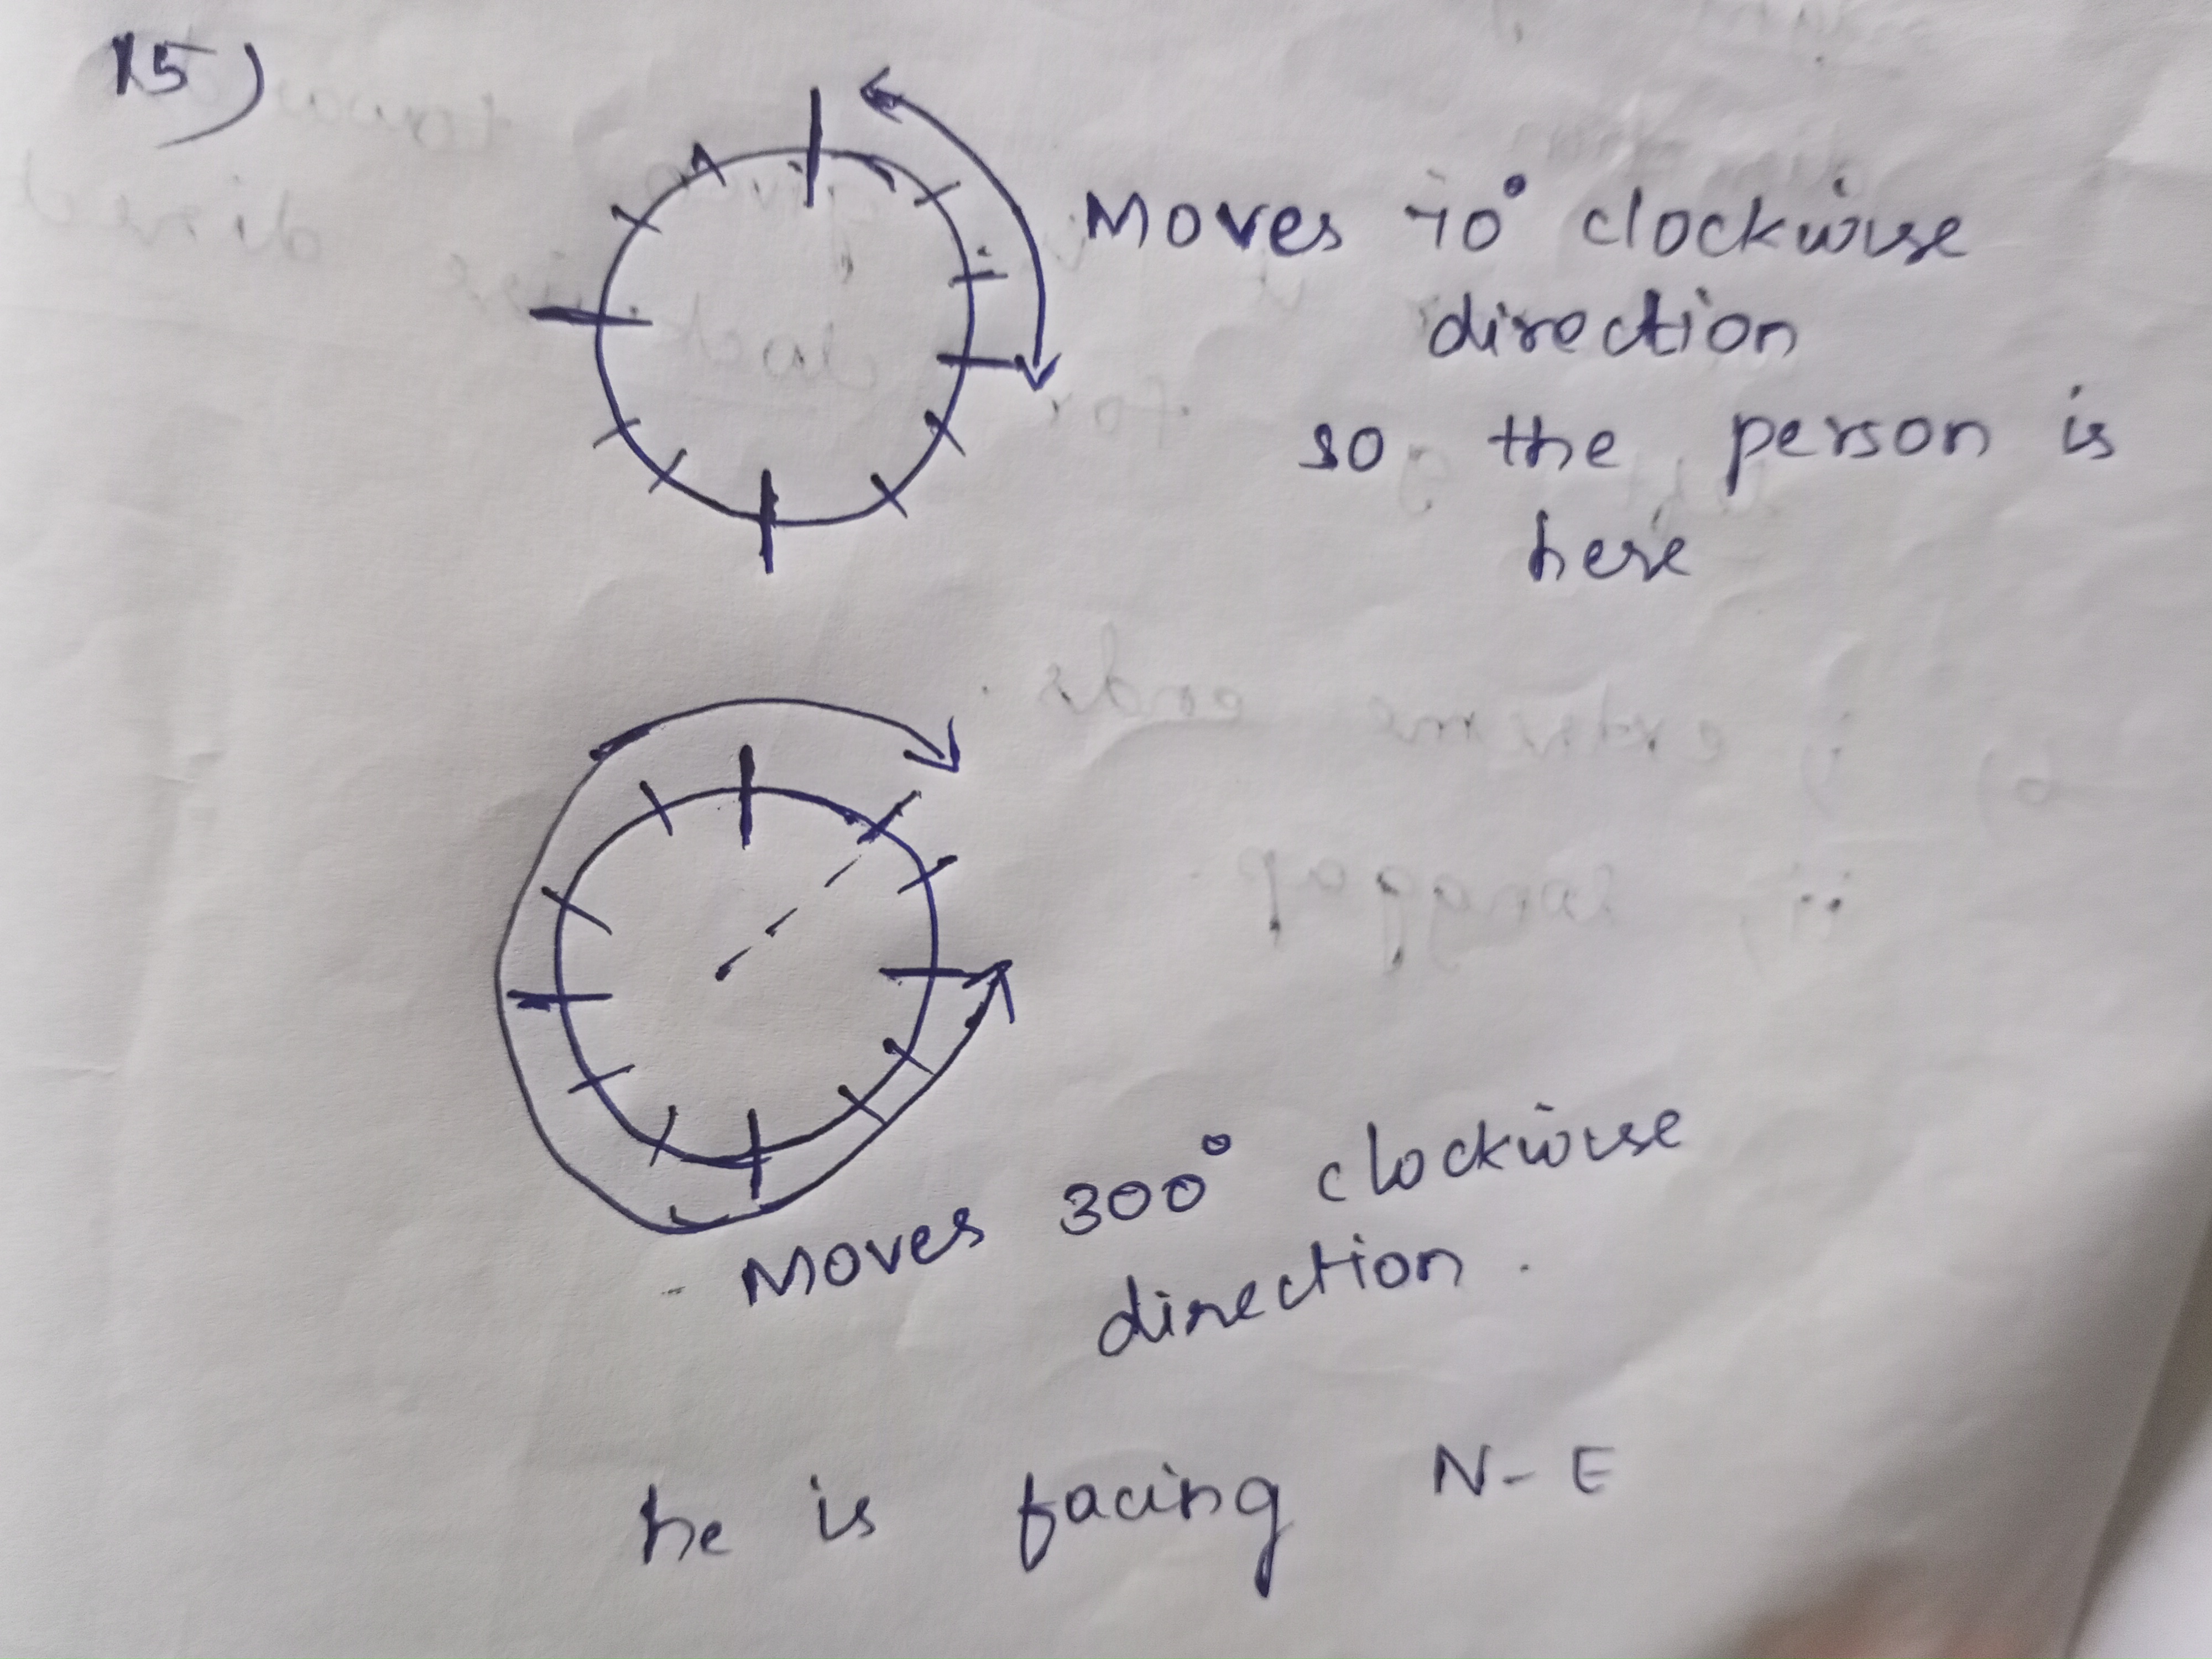 15)
Moves 90° clockwise
direction
so the person is
here
Moves 300° clockwise
direction.
he is facing N-E